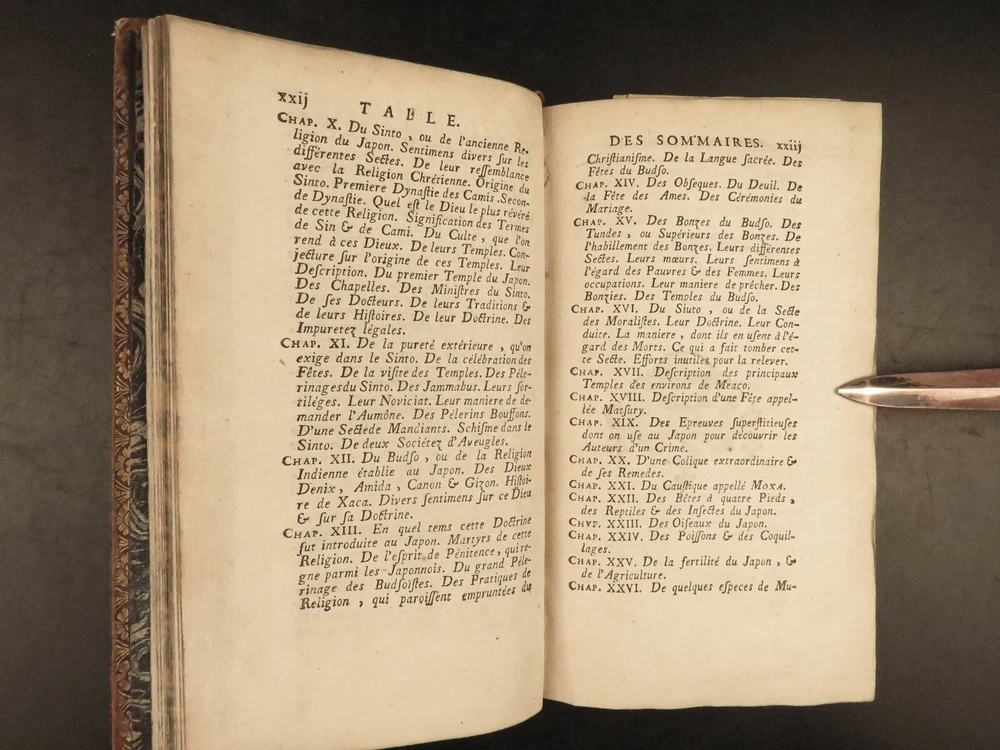 xxij TABLE.
CHAP. X. Du Sinto, ou de l'ancienne Re-
ligion du Japon. Sentimens divers ſur les
différentes Sectes. De leur reſſemblance
avec la Religion Chrétienne. Origine du
Sinto. Premiere Dynaſtie des Camis. Secon-
de Dynaſtie. Quel eſt le Dieu le plus révéré
de cette Religion. Signification des Termes
de Sin & de Cami. Du Culte, que l'on
rend à ces Dieux. De leurs Temples. Con-
jecture ſur l'origine de ces Temples. Leur
Deſcription. Du premier Temple du Japon.
Des Chapelles. Des Miniſtres du Sinto.
De ſes Docteurs. De leurs Traditions &
de leurs Hiſtoires. De leur Doctrine. Des
Impuretez légales.
CHAP. XI. De la pureté extérieure, qu'on
exige dans le Sinto. De la célébration des
Fêtes. De la viſite des Temples. Des Péle-
rinages du Sinto. Des Jammabus. Leurs ſor-
tiléges. Leur Noviciat. Leur maniere de de-
mander l'Aumône. Des Pélerins Bouffons.
D'une Secte de Mandiants. Schiſme dans le
Sinto. De deux Sociétez d'Aveugles.
CHAP. XII. Du Budſo, ou de la Religion
Indienne établie au Japon. Des Dieux
Denix, Amida, Canon & Gizon. Hiſtoi-
re de Xaca. Divers ſentimens ſur ce Dieu
& ſur ſa Doctrine.
CHAP. XIII. En quel tems cette Doctrine
fut introduite au Japon. Martyrs de cette
Religion. De l'eſprit de Pénitence, qui re-
gne parmi les Japonnois. Du grand Péle-
rinage des Budſoïſtes. Des Pratiques de
Religion, qui paroiſſent empruntées du
DES SOMMAIRES. xxiij
Chriſtianiſme. De la Langue ſacrée. Des
Fêtes du Budſo.
CHAP. XIV. Des Obſeques. Du Deuil. De
la Fête des Ames. Des Cérémonies du
Mariage.
CHAP. XV. Des Bonzes du Budſo. Des
Tundes, ou Supérieurs des Bonzes. De
l'habillement des Bonzes. Leurs différentes
Sectes. Leurs mœurs. Leurs ſentimens à
l'égard des Pauvres & des Femmes. Leurs
occupations. Leur maniere de prêcher. Des
Bonzies. Des Temples du Budſo.
CHAP. XVI. Du Siuto, ou de la Secte
des Moraliſtes. Leur Doctrine. Leur Con-
duite. La maniere, dont ils en uſent à l'é-
gard des Morts. Ce qui a fait tomber cet-
te Secte. Efforts inutiles pour la relever.
CHAP. XVII. Deſcription des principaux
Temples des environs de Meaco.
CHAP. XVIII. Deſcription d'une Fête appel-
lée Matſury.
CHAP. XIX. Des Epreuves ſuperſtitieuſes
dont on uſe au Japon pour découvrir les
Auteurs d'un Crime.
CHAP. XX. D'une Colique extraordinaire &
de ſes Remedes.
CHAP. XXI. Du Cauſtique appellé MOXA.
CHAP. XXII. Des Bêtes à quatre Pieds,
des Reptiles & des Inſectes du Japon.
CHVP. XXIII. Des Oiſeaux du Japon.
CHAP. XXIV. Des Poiſſons & des Coquil-
lages.
CHAP. XXV. De la fertilité du Japon, &
de l'Agriculture.
CHAP. XXVI. De quelques eſpeces de Mu-